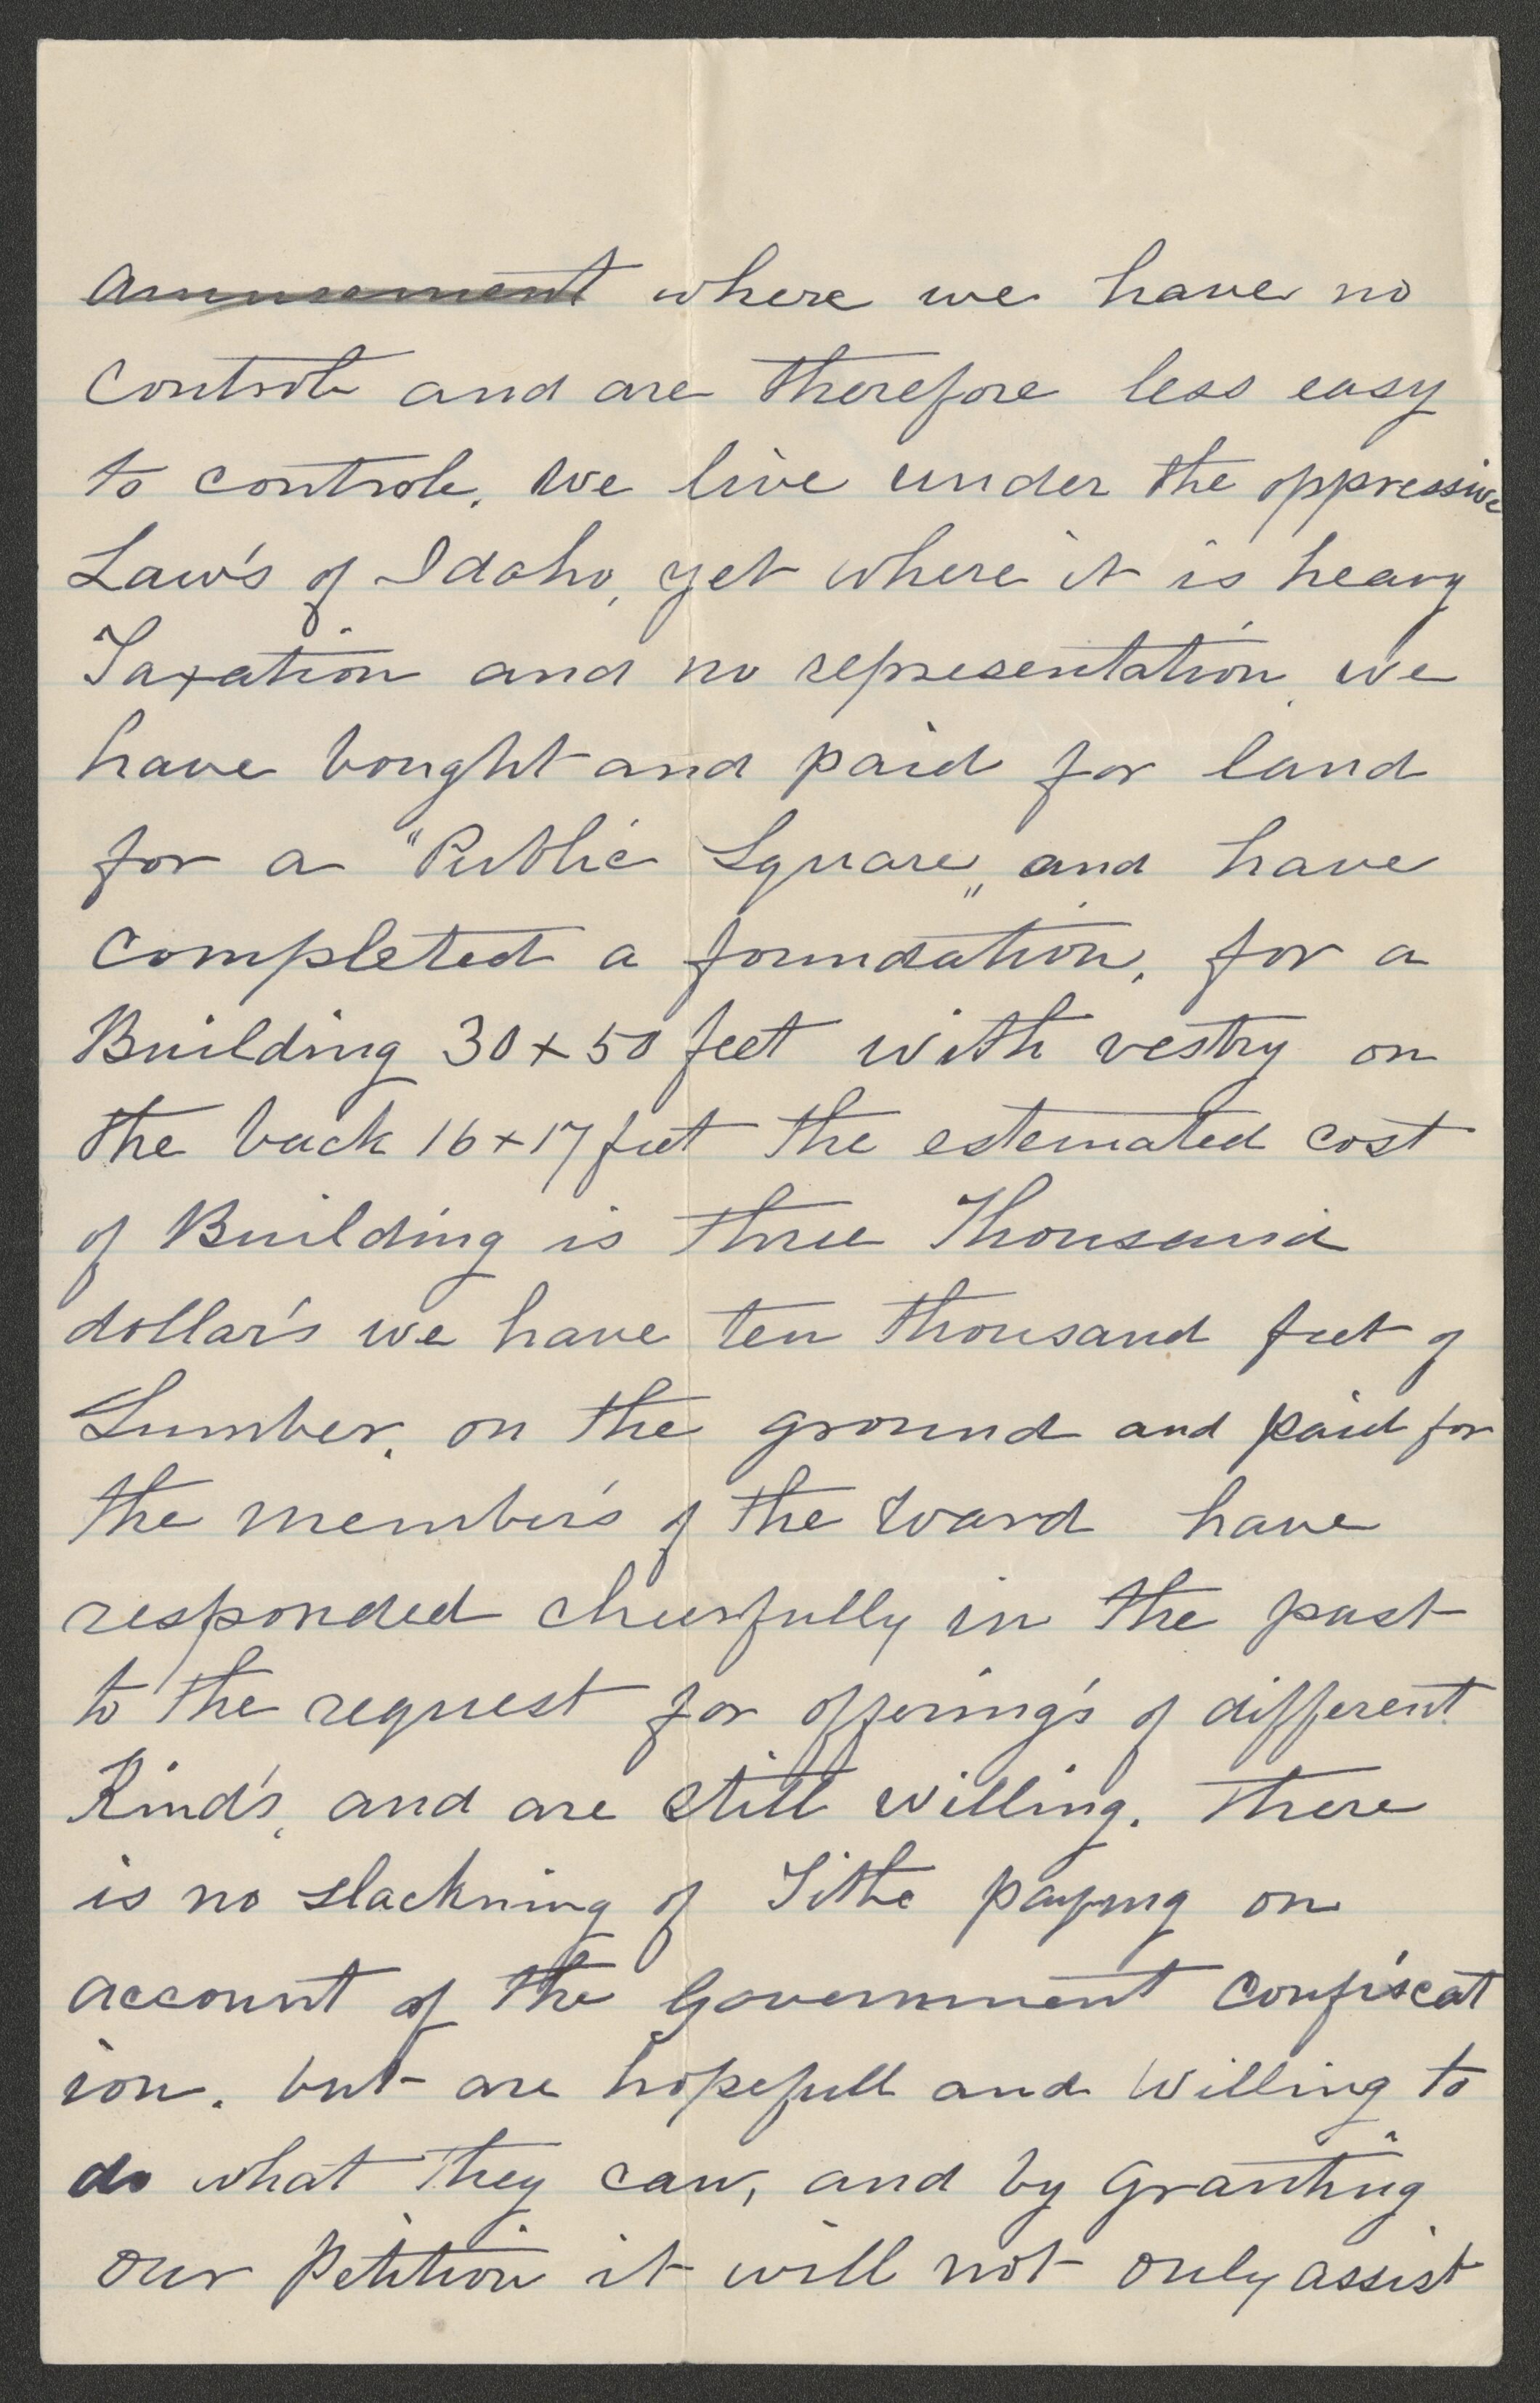 amusement where we have no
controle and are therefore less easy
to controle. We live under the oppressive
Law's of Idaho, yet where it is heavy
Taxation and no representation, we
have bought and paid for land
for a "Public Square" and have
completed a foundation, for a
Building 30 x 50 feet with vestry on
the back 16 x 17 feet the estemated cost
of Building is three Thousand
dollar's we have ten thousand feet of
Lumber, on the ground and paid for
the member's of the Ward have
responded cheerfully in the past
to the request for offering's of different
Kind's, and are still willing. There
is no slackning of Tithe paying on
account of the Government Confiscat
ion. but are hopefull and Willing to
do what They can, and by granting
our Petition it will not only assist